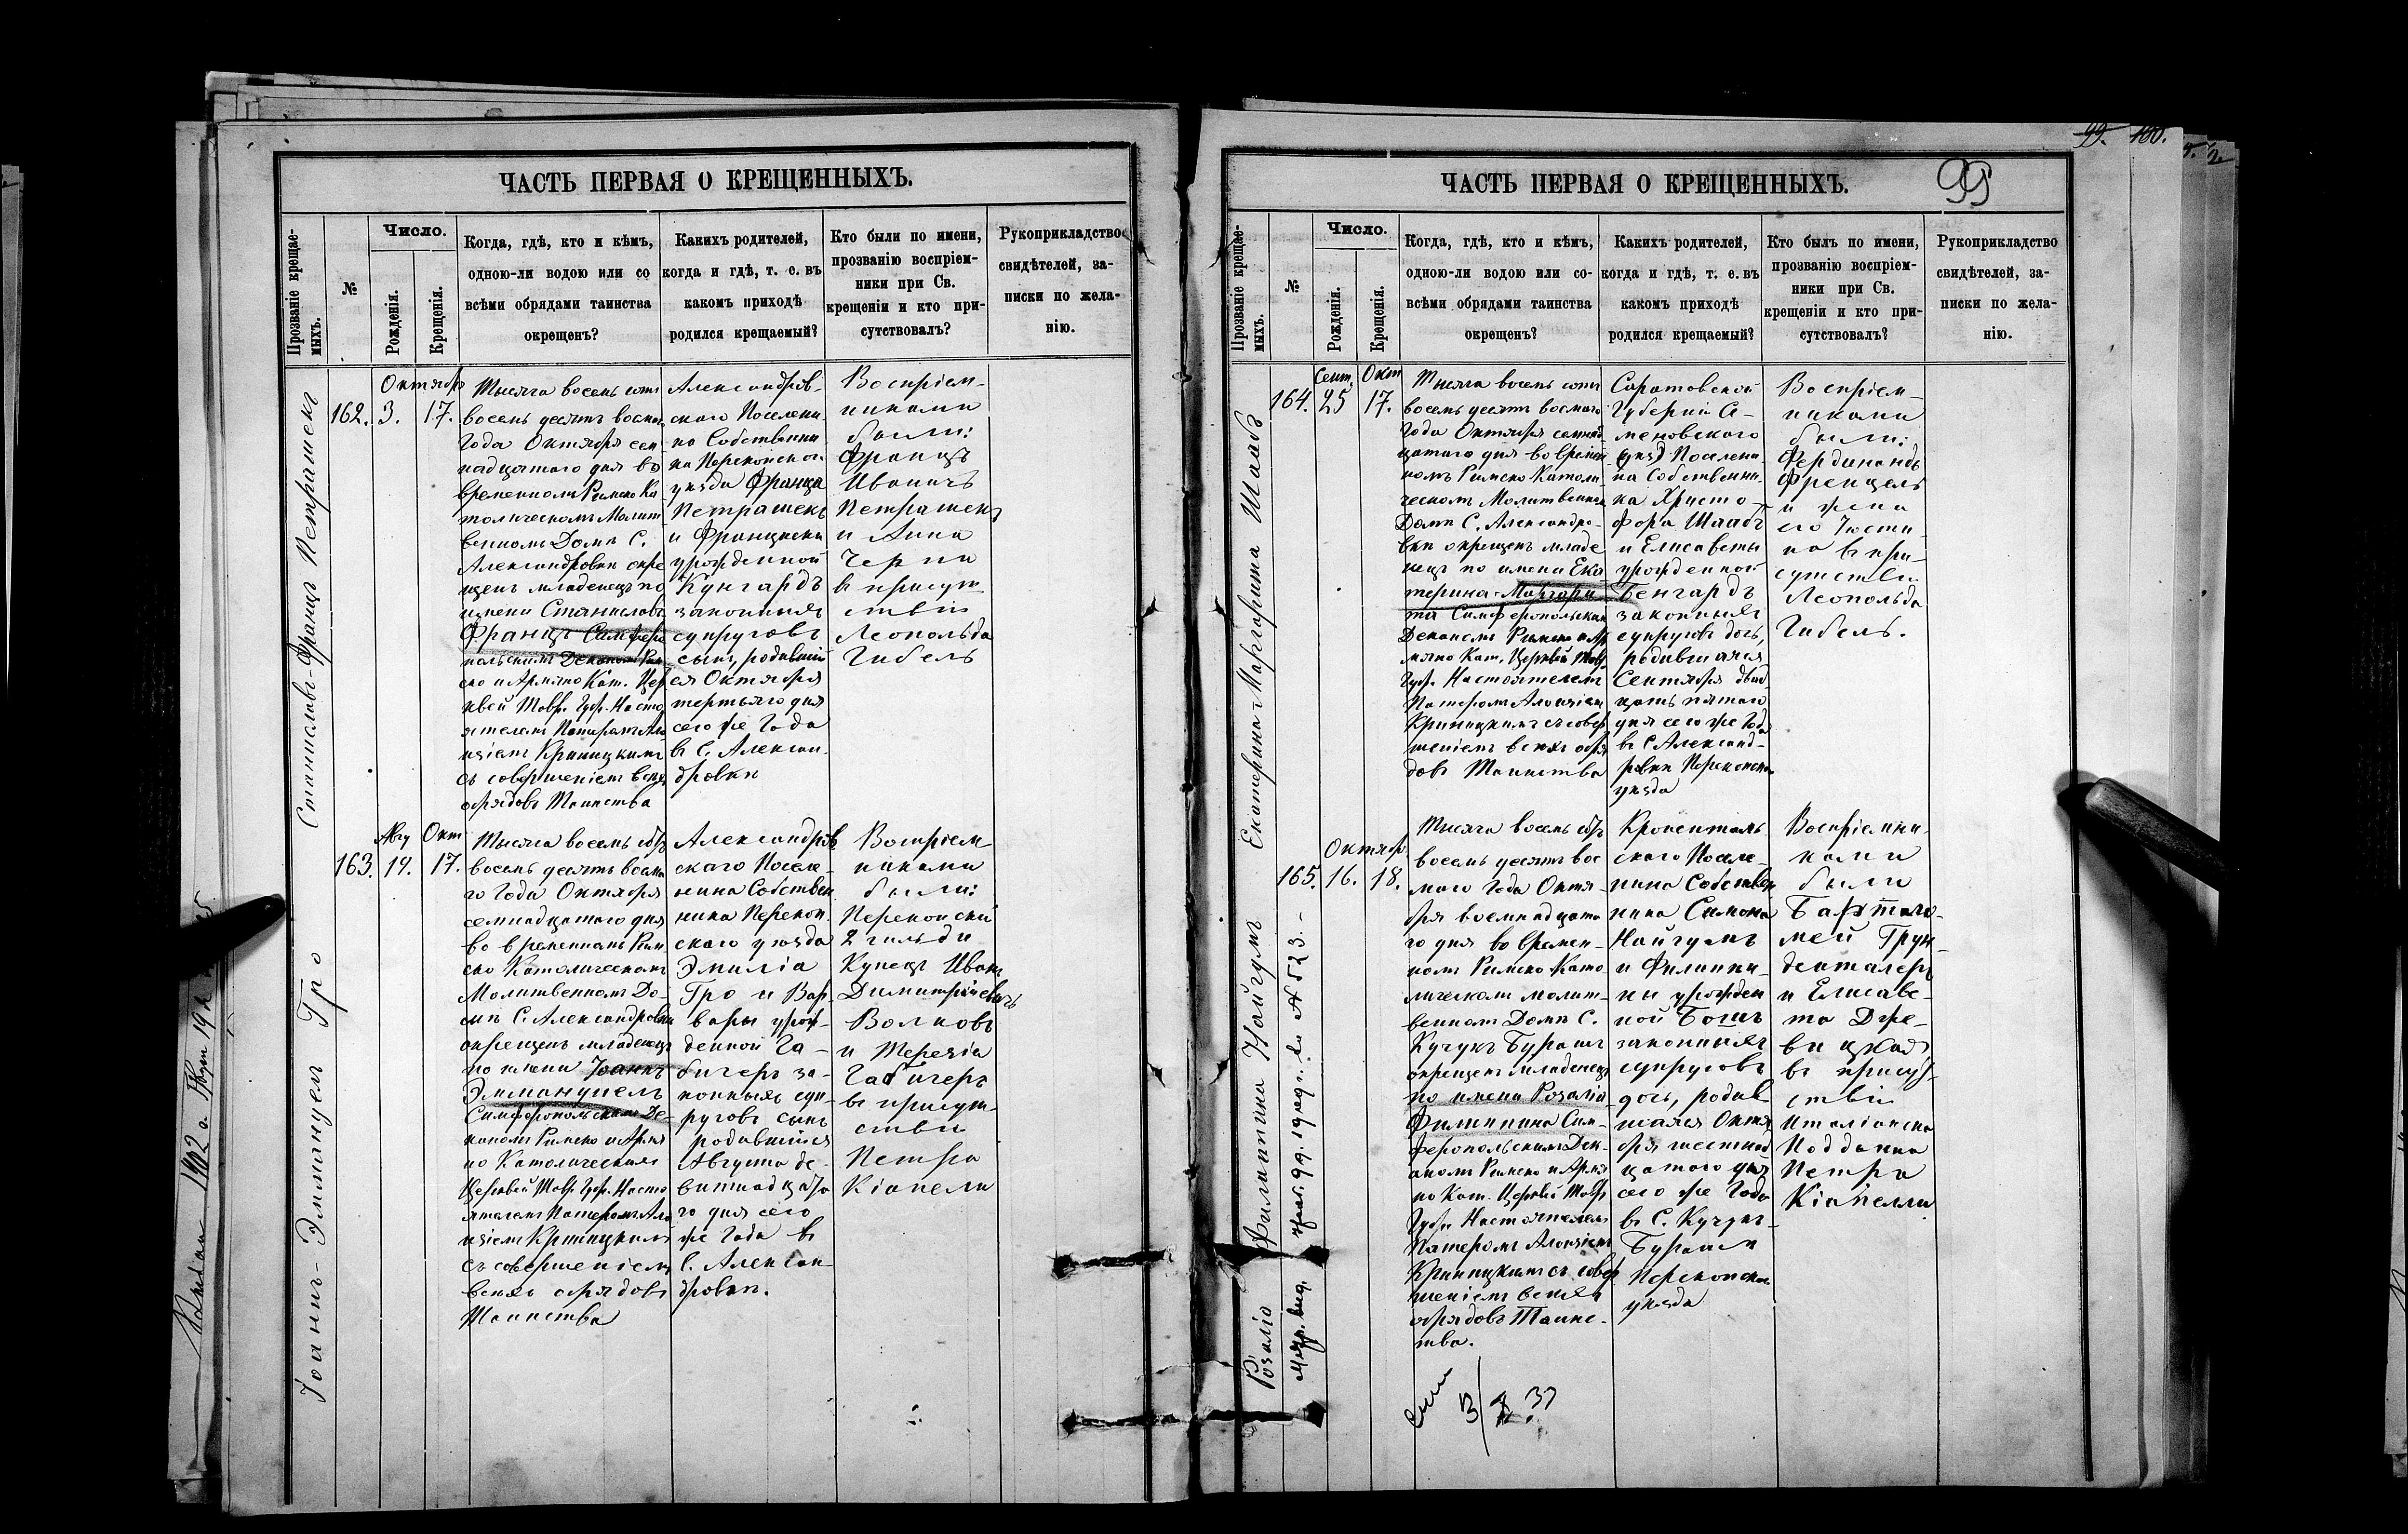 ЧАСТЬ ПЕРВАЯ О КРЕЩЕННЫХЪ.
Прозваніе крещае-
мыхъ.
№
Число.
Рожденія.
Крещенія.
Когда, гдѣ, кто и кѣмъ,
одною-ли водою или со
всѣми обрядами таинства
окрещенъ?
Какихъ родителей,
когда и гдѣ, т. е. въ
какомъ приходѣ
родился крещаемый?
Кто были по имени,
прозванію воспріем-
ники при Св.
крещеніи и кто при-
сутствовалъ?
Рукоприкладство
свидѣтелей, за-
писки по жела-
нію.
Станиславъ-Францъ Петрашекъ
162.
Октябрь
3. 17.
Тысяча восемь сотъ
восемь десятъ восма
Года Октября сем
надцатаго дня во
временномъ Римско Ка
толическомъ Молит
венномъ Домѣ С.
Александровки окре
щенъ младенецъ по
имени Станиславъ
Францъ Симферо
польскимъ Деканомъ Рим
ско и Армяно Кат. Цер
квей Тавр. Губ. Насто
ятелемъ Патеромъ Ало
изіемъ Криницкимъ
съ совершеніемъ всѣхъ
обрядовъ Таинства
Александров-
скаго Поселени
на Собственни
ка Перекопскаго
уѣзда Франца
Петрашекъ
и Франциски
урожденной
Кунгардъ
законныхъ
супруговъ
сынъ, родившій
ся Октября
третьяго дня
сего же Года
въ С. Алексан-
дровкѣ
Воспріем-
никами
были:
Францъ
Иваничъ
Петрашекъ
и Анна
Черни
въ присут
ствіи
Леопольда
Гибель
Іоаннъ-Эммануелъ Гро
163.
Авгу Окт
19. 17.
Тысяча восемь сотъ
восемь десятъ восма
го Года Октября
семнадцатаго дня
во временномъ Рим
ско Католическомъ
Молитвенномъ До-
мѣ С. Александровки
окрещенъ младенецъ
по имени Іоаннъ
Эммануелъ
Симферопольскимъ Де-
каномъ Римско и Армя
но Католическихъ
Церквей Тавр. Губ. Насто
ятелемъ Патеромъ Ало
изіемъ Криницкимъ
съ совершеніемъ
всѣхъ обрядовъ
Таинства
Александров
скаго Поселе-
нина Собствен
ника Перекоп
скаго уѣзда
Эмиліа
Гро и Вар-
вары урож-
денной Га-
бигеръ за-
конныхъ суп-
руговъ сынъ
родившійся
Августа де-
витнадцата
го дня сего
же Года въ
С. Алексан-
дровкѣ.
Воспріем-
никами
были:
Перекопскій
2 гильди
Купецъ Иванъ
Димитріевичъ
Волковъ
и Терезіа
Габигеръ
въ присут-
ствіи
Петра
Кіапели
ЧАСТЬ ПЕРВАЯ О КРЕЩЕННЫХЪ.
99
99. 100.
Прозваніе крещае-
мыхъ.
№
Число.
Рожденія.
Крещенія.
Когда, гдѣ, кто и кѣмъ,
одною-ли водою или со-
всѣми обрядами таинства
окрещенъ?
Какихъ родителей,
когда и гдѣ, т. е. въ
какомъ приходѣ
родился крещаемый?
Кто былъ по имени,
прозванію воспріем-
ники при Св.
крещеніи и кто при-
сутствовалъ?
Рукоприкладство
свидѣтелей, за-
писки по жела-
нію.
Екатерина-Маргарита Шаабъ
164.
Сент. Окт
25 17.
Тысяча восемь сотъ
восемь десятъ восмаго
Года Октября семнад
цатаго дня во времен
номъ Римско Католи
ческомъ Молитвенномъ
Домѣ С. Александро-
вки окрещенъ младе
нецъ по имени Ека-
терина-Маргари
та Симферопольскимъ
Деканомъ Римско и Ар
мяно Кат. Церквей Тавр
Губ. Настоятелемъ
Патеромъ Алоизіемъ
Криницкимъ съ совер
шеніемъ всѣхъ обря
довъ Таинства
Саратовской
Губерніи Се-
меновского
уѣзд Поселени
на Собственни
ка Христо-
фора Шаабъ
и Елисаветы
урожденной
Бенгардъ
законныхъ
супруговъ дочь,
родившаяся
Сентября двад
цать пятаго
дня сего же Года
въ С Александ-
ровки Перекопска
уѣзда
Воспріем-
никами
были:
Фердинандъ
Френцель
и жена
его Юсти-
на въ при-
сутствіи
Леопольда
Гибель.
Розаліа Филиппина Найгумъ
165.
Октябр.
16. 18.
Тысяча восемь сотъ
восемь десятъ вос
маго Года Октя-
бря восемнадцата
го дня во времен-
номъ Римско Като
лическомъ молит-
венномъ Домѣ С.
Кучукъ Бурашъ
окрещенъ младенецъ
по имени Розаліа
Филиппина Сим-
феропольскимъ Дек-
аномъ Римско и Армя
но Кат. Церквей Тавр
Губ. Настоятелемъ
Патеромъ Алоизіемъ
Криницкимъ съ совер
шеніемъ всѣхъ
обрядовъ Таинс-
тва.
Кроненталь
скаго Поселе-
нина Собствен
ника Симона
Найгумъ
и Филиппи-
ны урожден
ной Бошъ
законныхъ
супруговъ
дочь, родив
шаяся Октя
бря шестнад
цатаго дня
сего же Года
въ С. Кучукъ-
Бурашъ
Перекопска
уѣзда
Воспріемни-
ками
были
Бартоло-
мей Грун-
денталеръ
и Елисаве-
та
въ присут-
ствіи
Италіанска
Подданна
Петра
Кіапелли